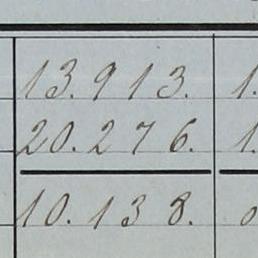 13.913. 1.
20.276. 1.
10.138. 0